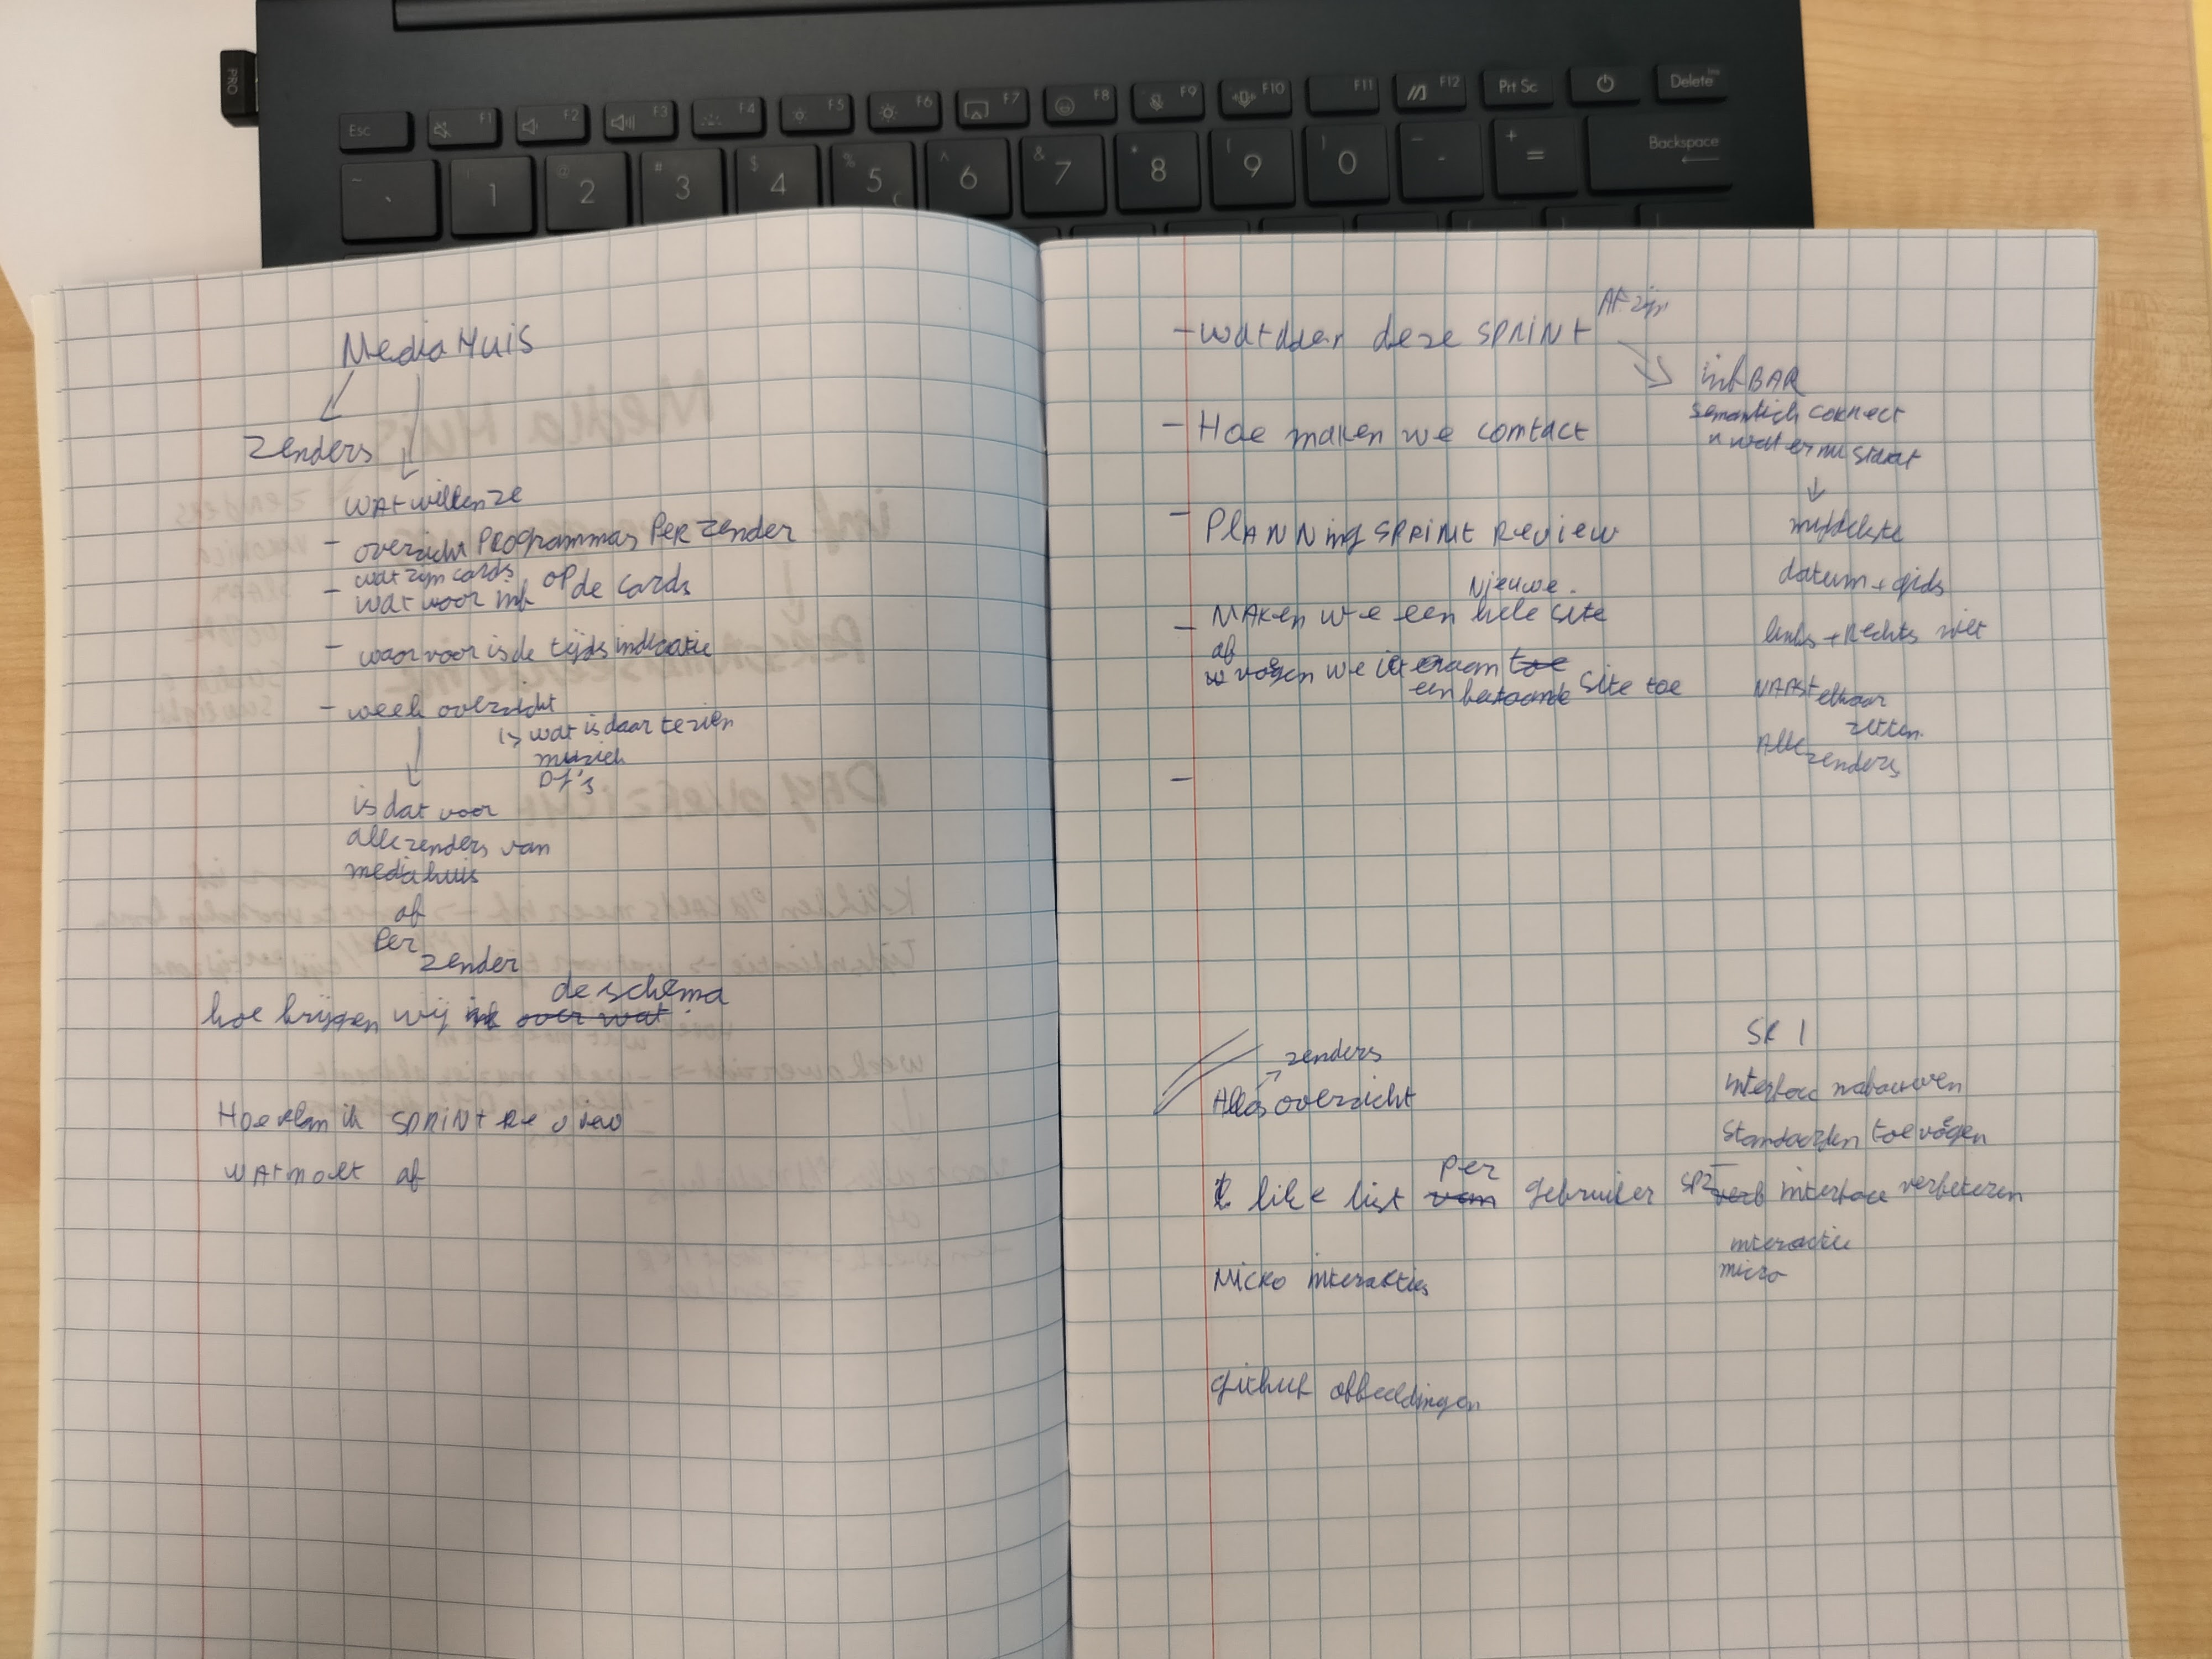 PRO
Esc F1 F2 F3 F4 F5 F6 F7 F8 F9 F10 F11 F12 Prt Sc Delete Ins
~ ` ! 1 @ 2 # 3 $ 4 % 5 € ^ 6 & 7 * 8 ( 9 ) 0 - + = Backspace
MediaHuis
zenders
WAt willen ze
- overzicht PROgrammas PER zender
wat zijn cards
- wat voor inf op de cards
- waarvoor is de tijds indicatie
- week overzicht
↳ wat is daar te zien
muziek
DJ's
is dat voor
alle zenders van
mediahuis
of
Per
zender
de schema
hoe krijgen wij ink over wat
Hoe plan ik SPRiNt Review
WAt moet af
AF zijn
- wat doen deze SPRiNt
- Hoe maken we comtact
- PlANNing SPRiNt Review
Nieuwe
- MAken we een hele site
of
voegen we
toe
een bestaande site toe
-
inf BAR
semantich correct
wat er nu staat
↓
middelste
datum + gids
links + Rechts niet
NAASt elkaar
zetten
Alle zenders
zenders
Alles overzicht
like list van per gebruiker
Micro interakties
github afbeeldingen
SR 1
interface nabouwen
Standaarden toevoegen
SP2 verb interface verbeteren
interactie
micro